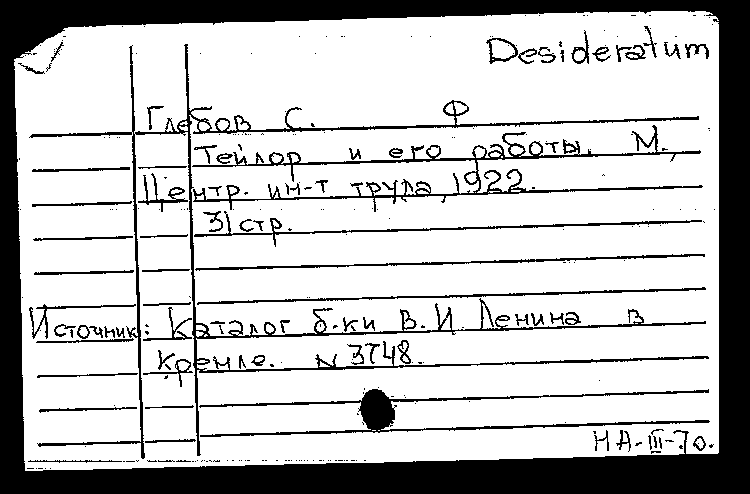 Desideratum
Глебов С. Ф
Тейлор и его работы. М.,
Центр. ин-т труда, 1922.
31 стр.
Источник: Каталог б-ки В. И Ленина в
Кремле. N 3748.
НА-III-70.